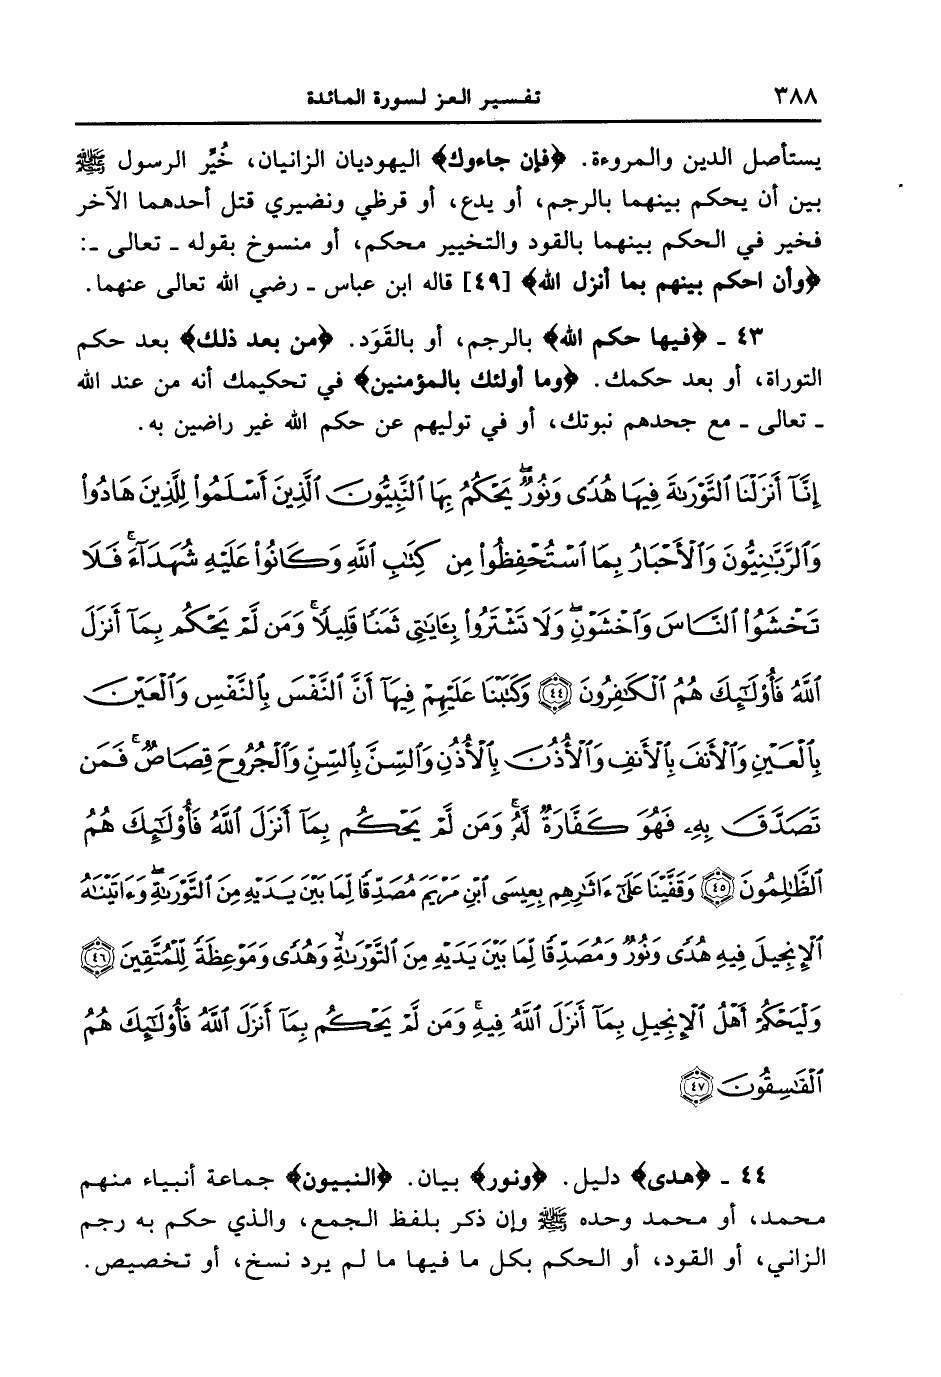 ٣٨٨ تفسير العز لسورة المائدة
يستأصل الدين والمروءة. ﴿فإن جاءوك﴾ اليهوديان الزانيان، خُيِّر الرسول ﷺ
بين أن يحكم بينهما بالرجم، أو يدع، أو قرظي ونضيري قتل أحدهما الآخر
فخير في الحكم بينهما بالقود والتخيير محكم، أو منسوخ بقوله ـ تعالى ـ:
﴿وأن احكم بينهم بما أنزل الله﴾ [٤٩] قاله ابن عباس ـ رضي الله تعالى عنهما.
٤٣ ـ ﴿فيها حكم الله﴾ بالرجم، أو بالقَوَد. ﴿من بعد ذلك﴾ بعد حكم
التوراة، أو بعد حكمك. ﴿وما أولئك بالمؤمنين﴾ في تحكيمك أنه من عند الله
ـ تعالى ـ مع جحدهم نبوتك، أو في توليهم عن حكم الله غير راضين به.
إِنَّآ أَنزَلْنَا ٱلتَّوْرَىٰةَ فِيهَا هُدًى وَنُورٌۚ يَحْكُمُ بِهَا ٱلنَّبِيُّونَ ٱلَّذِينَ أَسْلَمُوا۟ لِلَّذِينَ هَادُوا۟
وَٱلرَّبَّٰنِيُّونَ وَٱلْأَحْبَارُ بِمَا ٱسْتُحْفِظُوا۟ مِن كِتَٰبِ ٱللَّهِ وَكَانُوا۟ عَلَيْهِ شُهَدَآءَۚ فَلَا
تَخْشَوُا۟ ٱلنَّاسَ وَٱخْشَوْنِۖ وَلَا تَشْتَرُوا۟ بِـَٔايَٰتِى ثَمَنًا قَلِيلًاۚ وَمَن لَّمْ يَحْكُم بِمَآ أَنزَلَ
ٱللَّهُ فَأُو۟لَٰٓئِكَ هُمُ ٱلْكَٰفِرُونَ ٤٤ وَكَتَبْنَا عَلَيْهِمْ فِيهَآ أَنَّ ٱلنَّفْسَ بِٱلنَّفْسِ وَٱلْعَيْنَ
بِٱلْعَيْنِ وَٱلْأَنفَ بِٱلْأَنفِ وَٱلْأُذُنَ بِٱلْأُذُنِ وَٱلسِّنَّ بِٱلسِّنِّ وَٱلْجُرُوحَ قِصَاصٌۚ فَمَن
تَصَدَّقَ بِهِۦ فَهُوَ كَفَّارَةٌ لَّهُۥۚ وَمَن لَّمْ يَحْكُم بِمَآ أَنزَلَ ٱللَّهُ فَأُو۟لَٰٓئِكَ هُمُ
ٱلظَّٰلِمُونَ ٤٥ وَقَفَّيْنَا عَلَىٰٓ ءَاثَٰرِهِم بِعِيسَى ٱبْنِ مَرْيَمَ مُصَدِّقًا لِّمَا بَيْنَ يَدَيْهِ مِنَ ٱلتَّوْرَىٰةِۖ وَءَاتَيْنَٰهُ
ٱلْإِنجِيلَ فِيهِ هُدًى وَنُورٌ وَمُصَدِّقًا لِّمَا بَيْنَ يَدَيْهِ مِنَ ٱلتَّوْرَىٰةِ وَهُدًى وَمَوْعِظَةً لِّلْمُتَّقِينَ ٤٦
وَلْيَحْكُمْ أَهْلُ ٱلْإِنجِيلِ بِمَآ أَنزَلَ ٱللَّهُ فِيهِۚ وَمَن لَّمْ يَحْكُم بِمَآ أَنزَلَ ٱللَّهُ فَأُو۟لَٰٓئِكَ هُمُ
ٱلْفَٰسِقُونَ ٤٧
٤٤ ـ ﴿هدى﴾ دليل. ﴿ونور﴾ بيان. ﴿النبيون﴾ جماعة أنبياء منهم
محمد، أو محمد وحده ﷺ وإن ذكر بلفظ الجمع، والذي حكم به رجم
الزاني، أو القود، أو الحكم بكل ما فيها ما لم يرد نسخ، أو تخصيص.